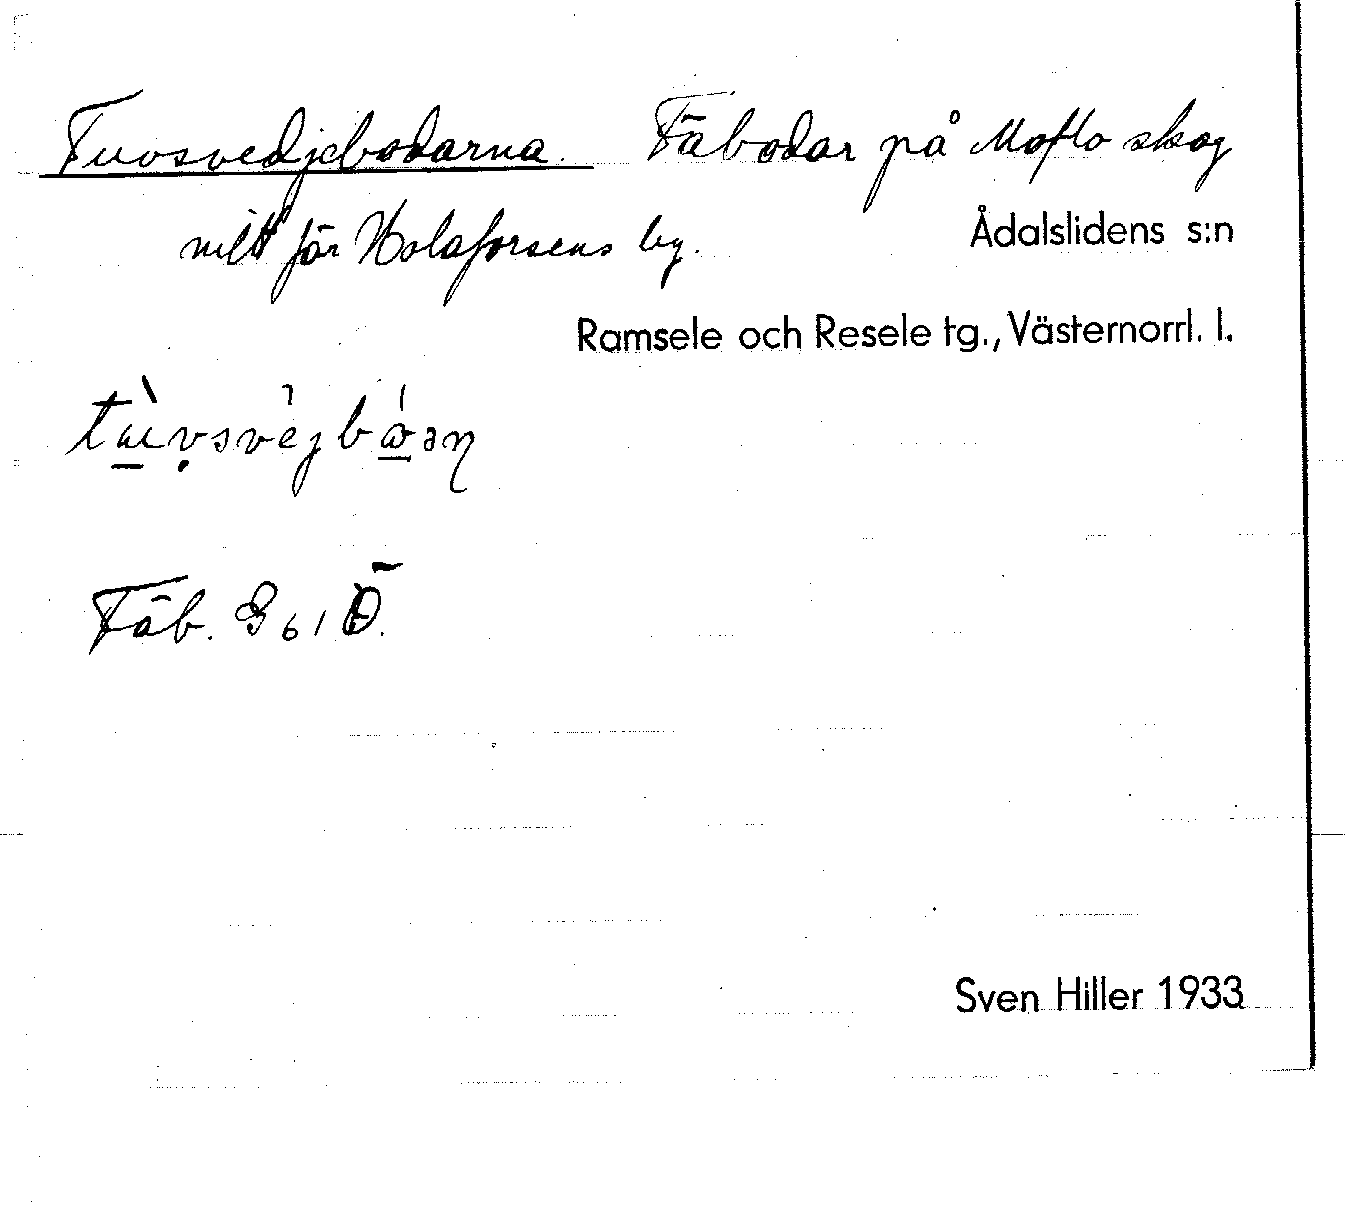 Tuvsvedjebodarna. Fäbodar på Moflo skog
mitt för Holaforsens by.
Ådalslidens s:n
Ramsele och Resele tg., Västernorrl. l.
Fäb.
Sven Hiller 1933